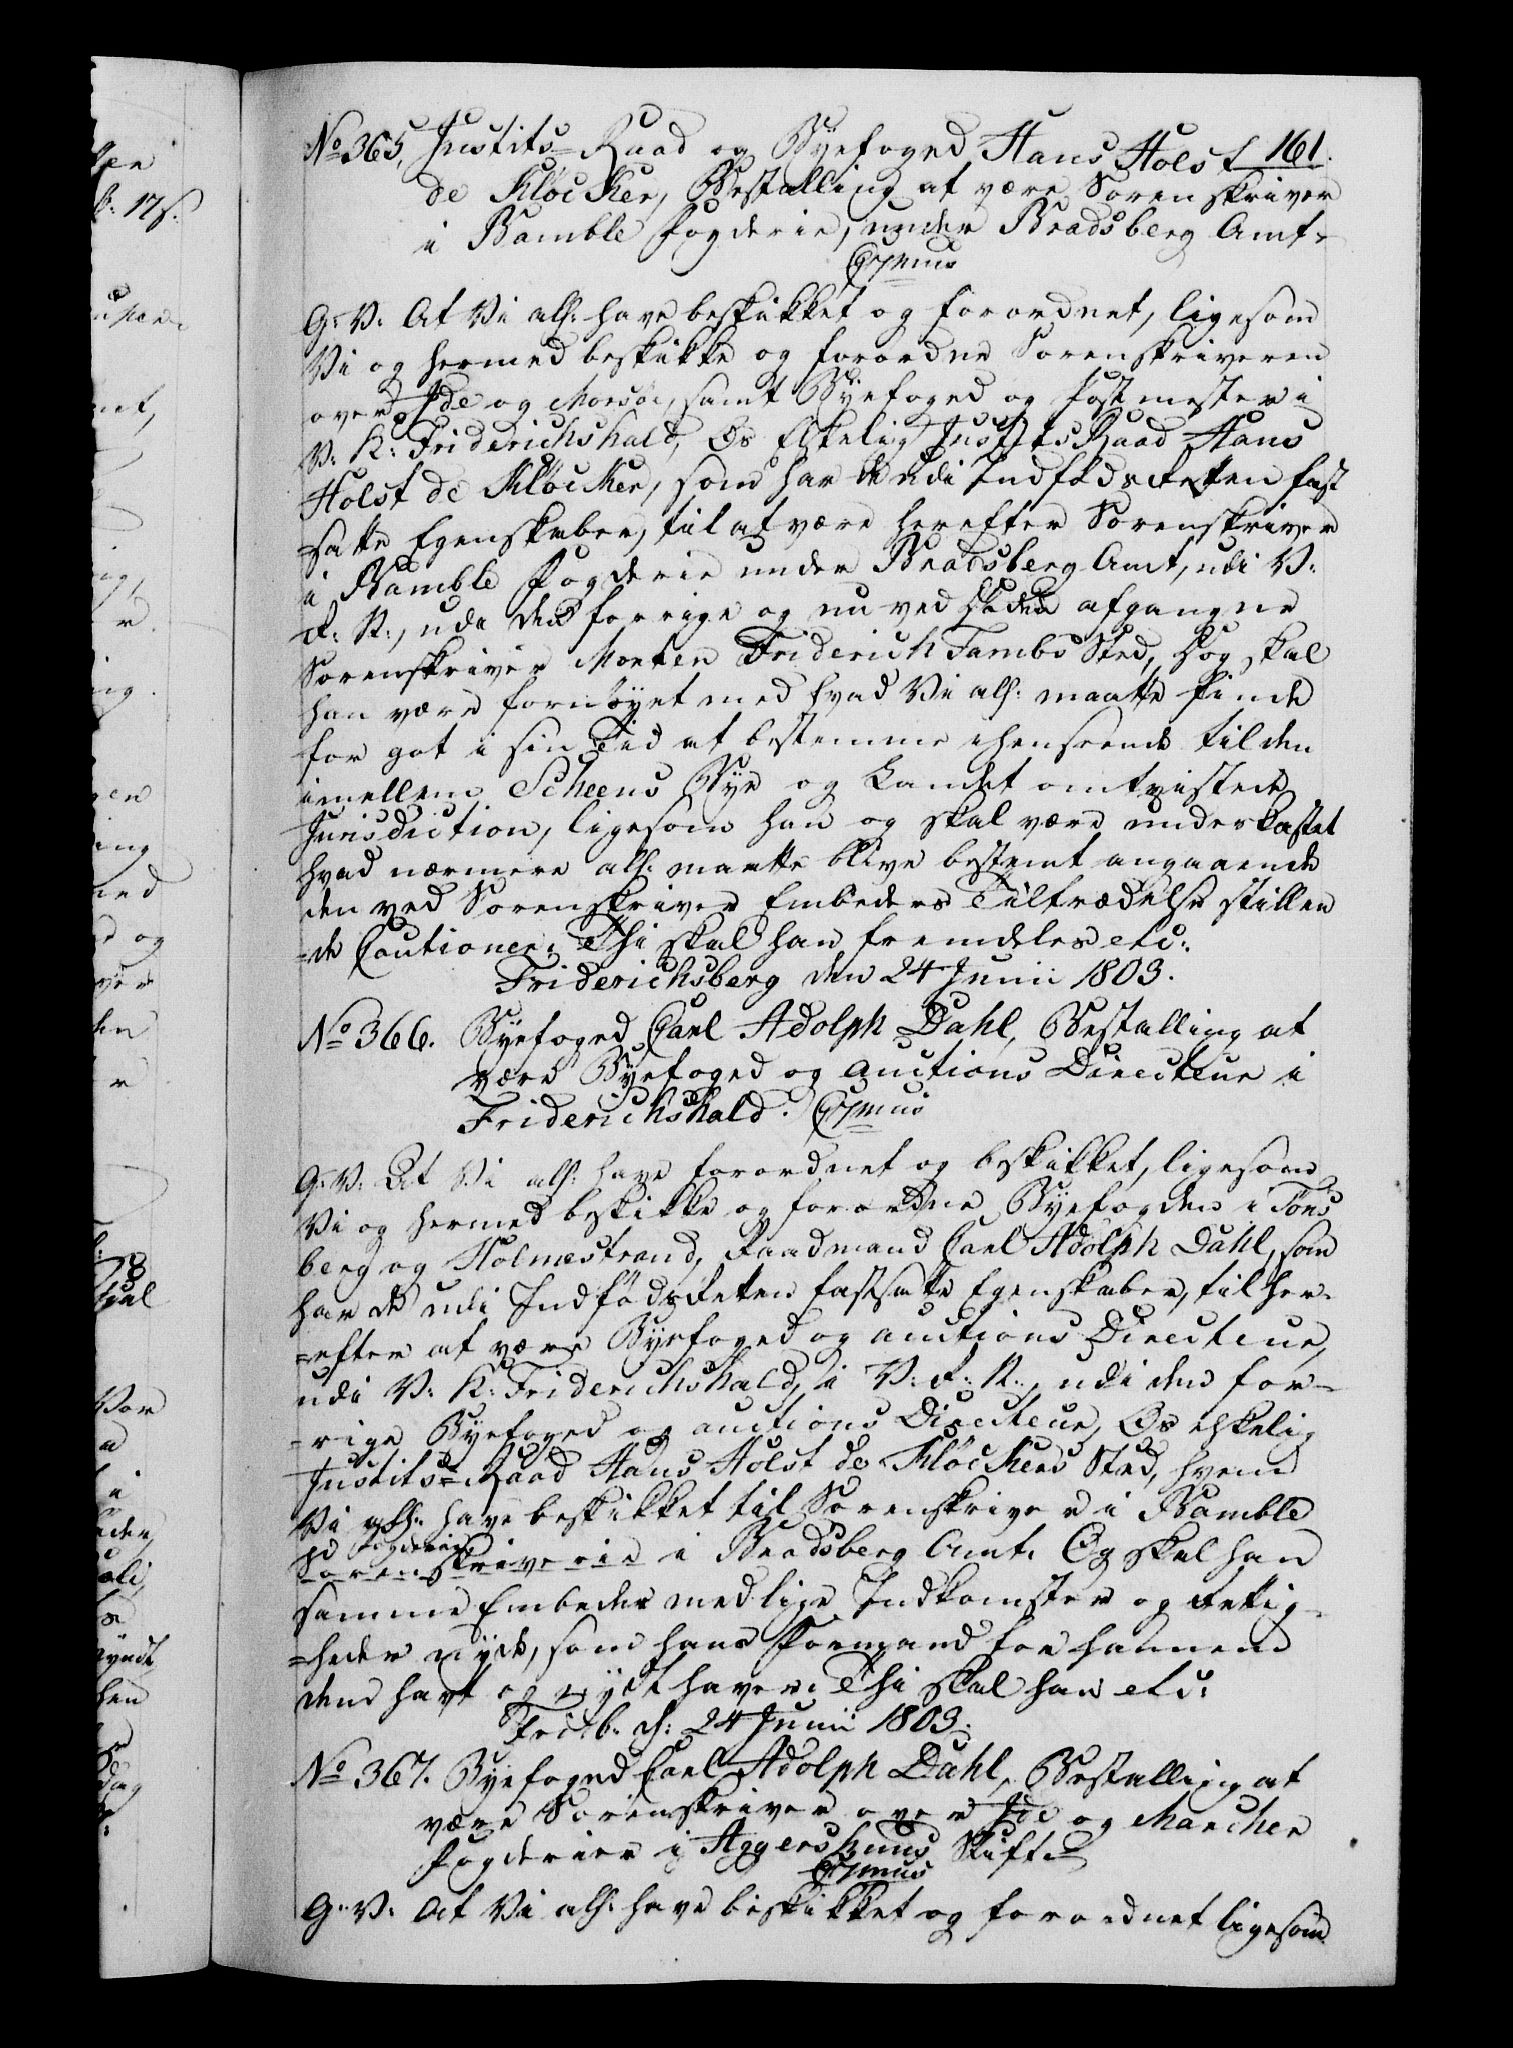 No 365, Justits-Raad og Byefoged Hans Holst 161.
de Kløcker, Bestalling at være Sorenskriver
i Bamble Fogderie, under Bradsberg Amt.
G: V: At Vi all: have beskikket og forordnet, ligesom
Vi og hermed beskikke og forordne Sorenskriveren
over Ide og Morsöe, samt Byefoged og Postmester i
V: K: Friderichshald, Os Elskelig Justits Raad Hans
Holst de Kløcker, som har de udi Indfødsretten fast
=satte Egenskaber, til at være herefter Sorenskriver
i Bamble Fogderie under Bradsberg Amt, udi V:
R: N:, udi den forrige og nu ved Døden afgangne
Sorenskriver Morten Friderich Tambs Sted, Dog skal
han være fornøyet med hvad Vi all: maatte finde
for got i sin Tid at bestemme ihenseende til den
imellem Scheens Bye og Landet omtvistede
Jurisdiction, ligesom han og skal være underkastet
hvad nærmere all: maatte blive bestemt angaaende
den ved Sorenskriver Embeders Tiltrædelse stillen
=de Cautioner; Thi skal han fremdeles etc:
Friderichsberg den 24 Junii 1803.
No 366. Byefoged Carl Adolph Dahl, Bestalling at
være Byefoged og Auctions Directeur i
Friderichshald.
G: V: At Vi all: have forordnet og beskikket, ligesom
Vi og hermed beskikke og forordne Byefogden i Töns
berg og Holmestrand, Raadmand Carl Adolph Dahl, som
har de udi Indfødsretten fastsatte Egenskaber, til her-
=efter at være Byefoged og auctions Directeur,
udi V: K: Friderichshald, i V: R: N:, udi den for-
=rige Byefoged og auctions Directeur, Os elskelig
Justits-Raad Hans Holst de Kløckers Sted, hvem
Vi all: have beskikket til Sorenskriver i Bamble
Fogderie
Sorenskriverie i Bradsberg Amt. Og skal han
samme Embeder med lige Indkomster og Rettig-
=heder nyde, som hans Formand for hannem
dem havt og nydt haver. Thi skal han etc:
Fridb: d: 24 Junii 1803.
No 367. Byefoged Carl Adolph Dahl, Bestalling at
være Sorenskriver over Ide og Marcher
Fogderier i Aggershuus Stift
G: V: At Vi all: have beskikket og forordnet ligesom